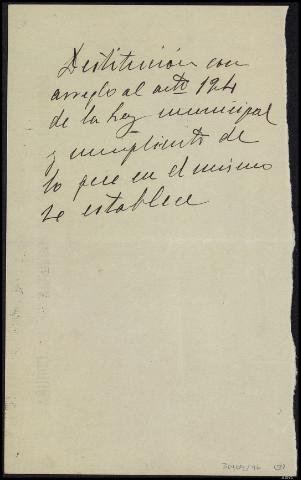 Destitución con
arreglo al artº 124
de la ley municipal
y cumplimto de
lo que en el mismo
se establece